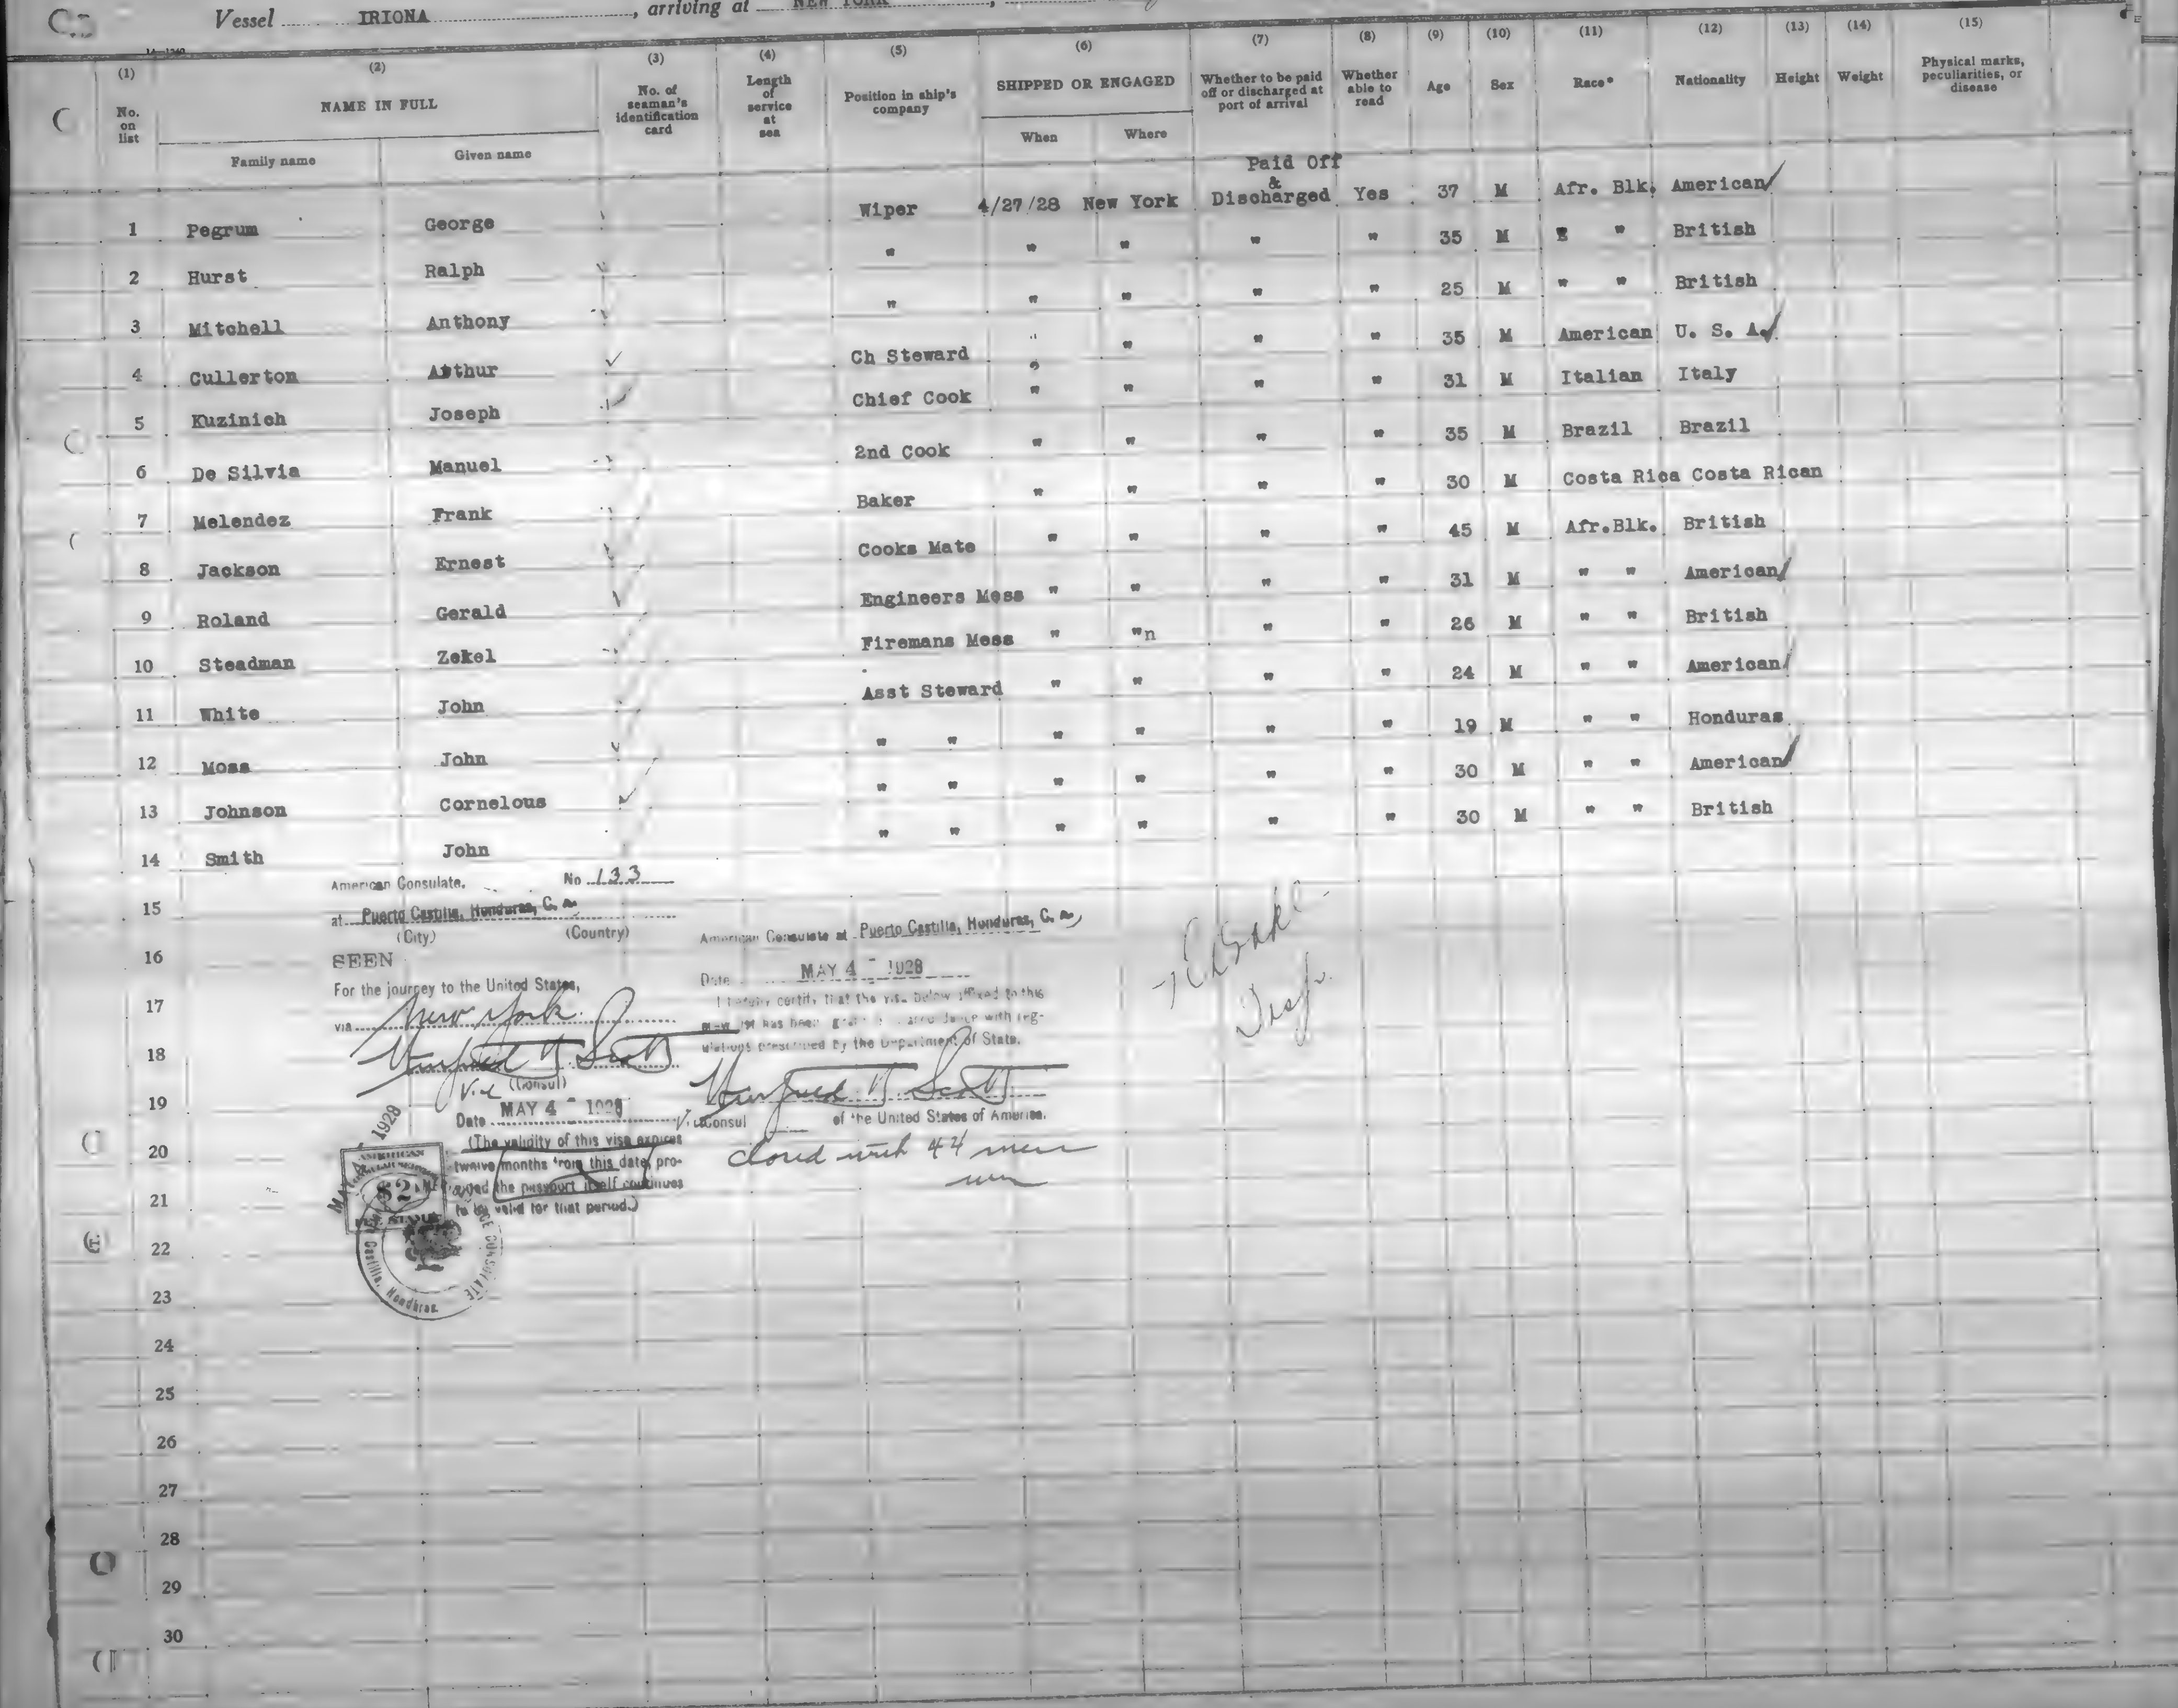 Vessel IRIONA, arriving at NEW YORK,
(1) (2) (3) (4) (5) (6) (7) (8) (9) (10) (11) (12) (13) (14) (15)
No. on list
NAME IN FULL
Family name
Given name
No. of seaman's identification card
Length of service at sea
Position in ship's company
SHIPPED OR ENGAGED
When
Where
Whether to be paid off or discharged at port of arrival
Whether able to read
Age
Sex
Race*
Nationality
Height
Weight
Physical marks, peculiarities, or disease
Paid Off
&
1 Pegrum George Wiper 4/27/28 New York Discharged Yes 37 M Afr. Blk. American
2 Hurst Ralph " " " " " 35 M " " British
3 Mitchell Anthony " " " " " 25 M " " British
4 Cullerton Arthur Ch Steward " " " " 35 M American U. S. A.
5 Kuzinich Joseph Chief Cook " " " " 31 M Italian Italy
6 De Silvia Manuel 2nd Cook " " " " 35 M Brazil Brazil
7 Melendez Frank Baker " " " " 30 M Costa Rica Costa Rican
8 Jackson Ernest Cooks Mate " " " " 45 M Afr.Blk. British
9 Roland Gerald Engineers Mess " " " " 31 M " " American
10 Steadman Zekel Firemans Mess " "n " " 26 M " " British
11 White John Asst Steward " " " " 24 M " " American
12 Moss John " " " " " " 19 M " " Honduras
13 Johnson Cornelous " " " " " " 30 M " " American
14 Smith John " " " " " " 30 M " " British
15
16
17
18
19
20
21
22
23
24
25
26
27
28
29
30
American Consulate. No 133
at Puerto Castilla, Honduras, C. A.
(City) (Country)
SEEN
For the journey to the United States,
via New York
Winfield H Scott
Vice (Consul)
Date MAY 4 - 1928
(The validity of this visa expires
twelve months from this date, pro-
vided the passport itself continues
to be valid for that period.)
American Consulate at Puerto Castilla, Honduras, C. A.
Date MAY 4 - 1928
I hereby certify that the visa below affixed to this
crew list has been granted in accordance with reg-
ulations prescribed by the Department of State.
Winfield H Scott
Consul of the United States of America.
closed with 44 men
1928
AMERICAN
$2
FEE STAMP
CONSULATE
Castilla, Honduras.